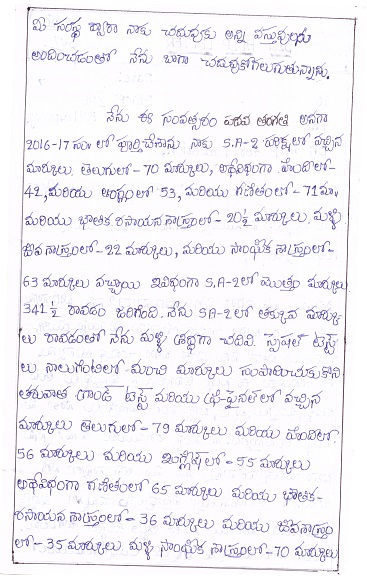 మీ సంస్థ ద్వారా నాకు చదువుకు అన్ని వస్తువులను
అందించడంతో నేను బాగా చదువుకోగలుగుతున్నాను.
నేను ఈ సంవత్సరం పదవ తరగతి అనగా
2016-17 సం॥లో పూర్తిచేశాను. నాకు S.A-2 పరీక్షలో వచ్చిన
మార్కులు తెలుగులో-70 మార్కులు, అదేవిధంగా హిందీలో-
42, మరియు ఆంగ్లంలో 53, మరియు గణితంలో-71మా,
మరియు భౌతిక రసాయన శాస్త్రంలో- 20½ మార్కులు. మళ్ళి
జీవ శాస్త్రంలో-22 మార్కులు, మరియు సాంఘిక శాస్త్రంలో-
63 మార్కులు వచ్చాయి ఇవిధంగా S.A-2లో మొత్తం మార్కులు
341½ రావడం జరిగింది. నేను SA-2లో తక్కువ మార్కు
లు రావడంతో నేను మళ్ళి శ్రద్ధగా చదివి. స్పెషల్ టెస్ట్
లు నాలుగంటిలో మంచి మార్కులు సంపాదించుకుని
తరువాత గ్రాండ్ టెస్ట్ మరియు ప్రీ-ఫైనల్‌లో వచ్చిన
మార్కులు తెలుగులో- 79 మార్కులు మరియు హిందిలో
56 మార్కులు మరియు ఇంగ్లీష్‌లో-55 మార్కులు
అదేవిధంగా గణితంలో 65 మార్కులు మరియు భౌతిక-
రసాయన శాస్త్రంలో- 36 మార్కులు మరియు జీవశాస్త్రం
లో-35 మార్కులు మళ్ళి సాంఘిక శాస్త్రంలో-70 మార్కులు